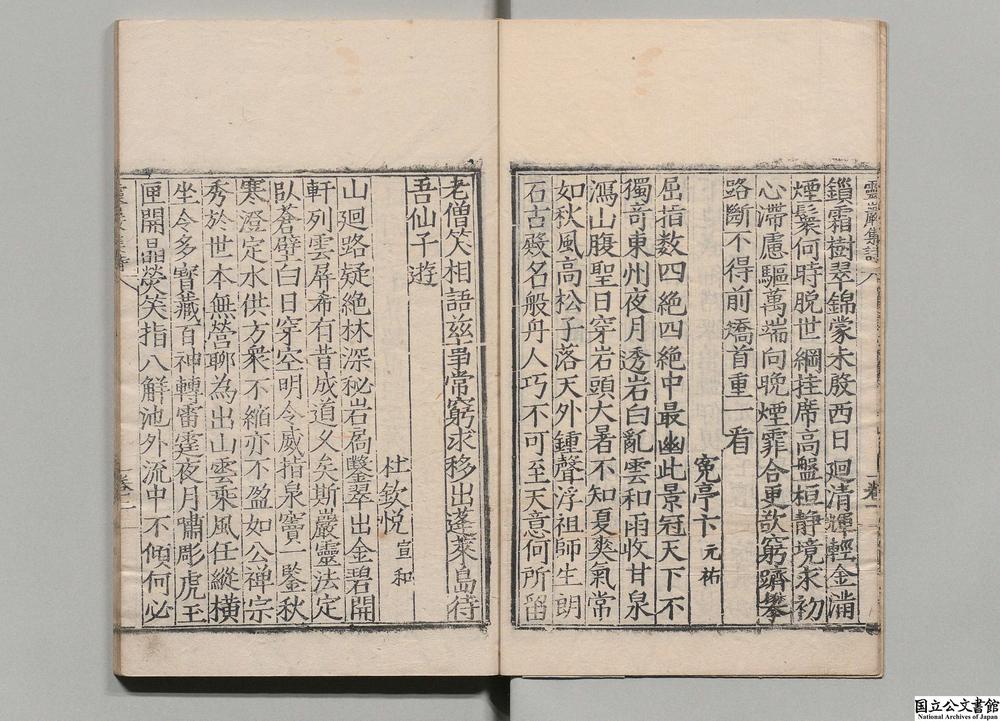 靈巖集詩
卷一
鎖霜樹翠錦蒙未殷西日廻清輝輕金滿
煙鬟何時脫世綱挂席高盤桓靜境求初
心滯慮驅萬端向晚煙霏合更欲窮躋攀
路斷不得前矯首重一看
寃亭卞 元祐
屈指数四絶四絶中最幽此景冠天下不
獨奇東州夜月透岩白亂雲和雨收甘泉
瀉山腹聖日穿岩頭大暑不知夏爽氣常
如秋風高松子落天外鍾聲浮祖師生朗
石古殿名般舟人巧不可至天意何所留
老僧笑相語茲事常窮求移出蓬萊島待
吾仙子遊
杜欽悦 宣和
山廻路疑絶林深秘岩扃鑿翠出金碧開
軒列雲屏希有昔成道乆矣斯巖靈法定
臥蒼壁白日穿空明令威指泉竇一鑒秋
寒澄定水供方衆不縮亦不盈如公禅宗
秀於世本無營聊為出山雲乘風任縱橫
坐令多寳藏百神轉雷霆夜月嘯彫虎玉
匣開晶熒笑指八觧池外流中不傾何必
国立公文書館
National Archives of Japan